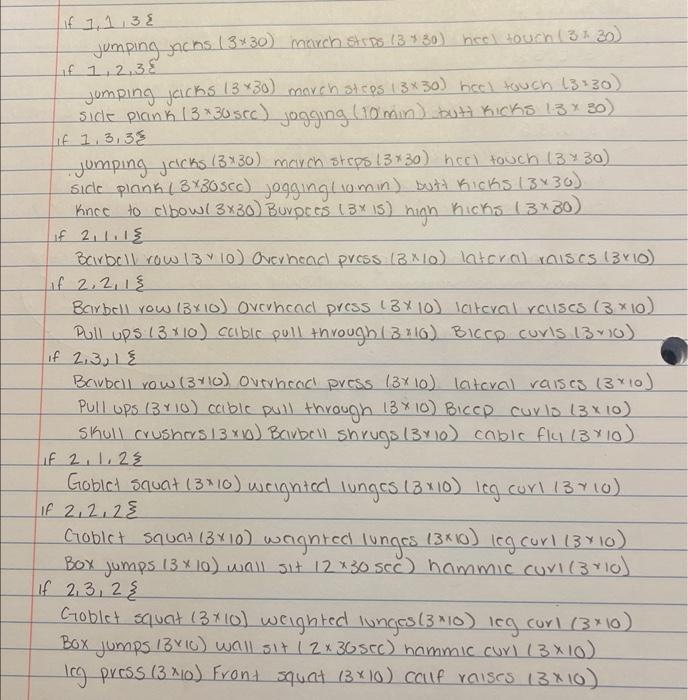 if 1,1,3{
jumping jacks (3x30) march steps (3x30) heel touch (3x30)
if 1,2,3{
jumping jacks (3x30) march steps (3x30) heel touch (3x30)
Side plank (3x30sec) jogging (10min) butt kicks (3x30)
if 1,3,3{
jumping jacks (3x30) march steps (3x30) heel touch (3x30)
Side plank (3x30sec) jogging (10min) butt kicks (3x30)
Knee to elbow (3x30) Burpees (3x15) high kicks (3x30)
if 2,1,1{
Barbell row (3x10) Overhead press (3x10) lateral raises (3x10)
if 2,2,1{
Barbell row (3x10) Overhead press (3x10) lateral raises (3x10)
Pull ups (3x10) cable pull through (3x10) Bicep curls (3x10)
if 2,3,1{
Barbell row (3x10) Overhead press (3x10) lateral raises (3x10)
Pull ups (3x10) cable pull through (3x10) Bicep curls (3x10)
Skull crushers (3x10) Barbell shrugs (3x10) cable fly (3x10)
if 2,1,2{
Goblet squat (3x10) weighted lunges (3x10) leg curl (3x10)
if 2,2,2{
Goblet squat (3x10) weighted lunges (3x10) leg curl (3x10)
Box jumps (3x10) wall sit (2x30sec) hammic curl (3x10)
if 2,3,2{
Goblet squat (3x10) weighted lunges (3x10) leg curl (3x10)
Box jumps (3x10) wall sit (2x30sec) hammic curl (3x10)
leg press (3x10) Front squat (3x10) calf raises (3x10)